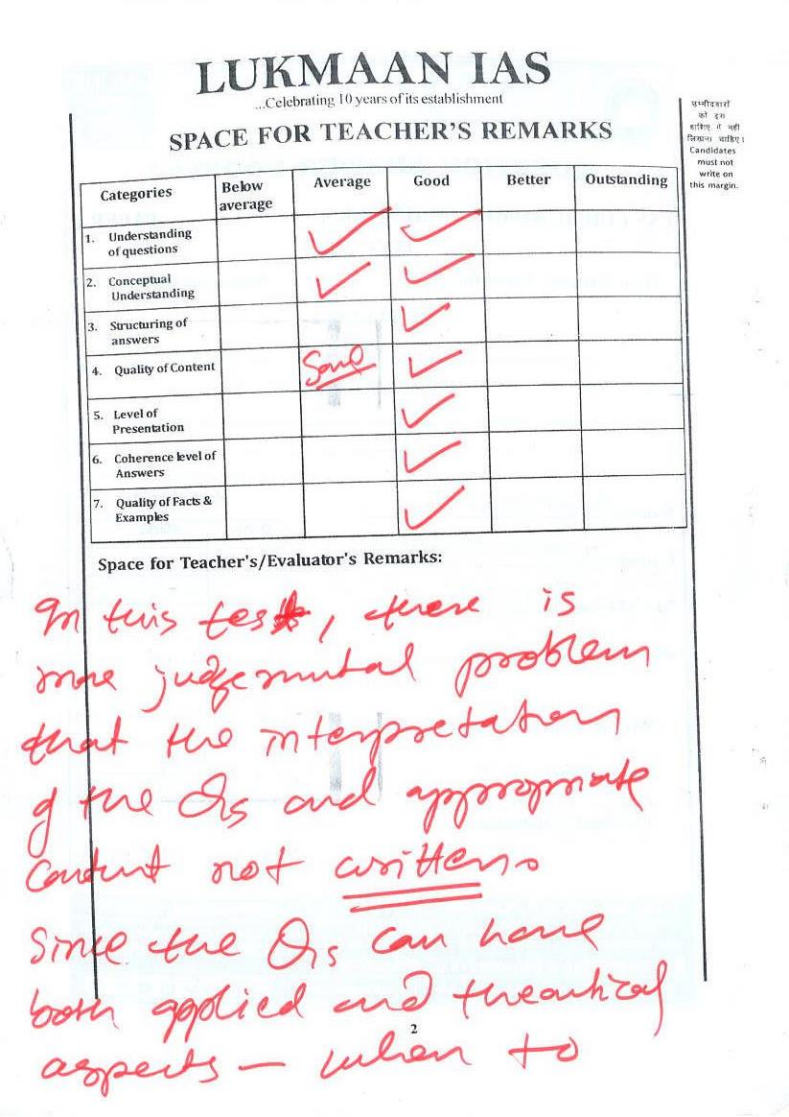 LUKMAAN IAS
...Celebrating 10 years of its establishment
SPACE FOR TEACHER'S REMARKS
उम्मीदवारों
को इस
हाशिए में नहीं
लिखना चाहिए।
Candidates
must not
write on
this margin.
Categories Below average Average Good Better Outstanding
1. Understanding of questions ✓ ✓
2. Conceptual Understanding ✓ ✓
3. Structuring of answers ✓
4. Quality of Content Some ✓
5. Level of Presentation ✓
6. Coherence level of Answers ✓
7. Quality of Facts & Examples ✓
Space for Teacher's/Evaluator's Remarks:
In this test, there is
more judgemental problem
that the interpretation
of the Qs and appropriate
content not written.
Since the Qs can have
both applied and theoretical
2
aspects — when to